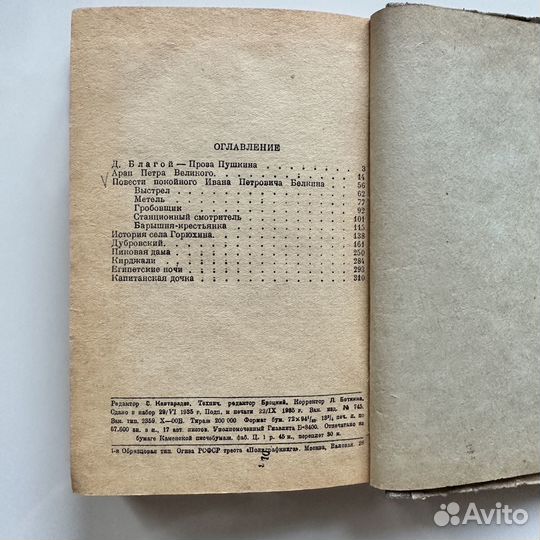 ОГЛАВЛЕНИЕ
Д. Благой — Проза Пушкина 3
Арап Петра Великого. 14
Повести покойного Ивана Петровича Белкина 56
Выстрел 62
Метель 77
Гробовщик 92
Станционный смотритель 101
Барышня-крестьянка 115
История села Горюхина. 138
Дубровский. 161
Пиковая дама 250
Кирджали 284
Египетские ночи 293
Капитанская дочка 310
Редактор Технич. редактор Броцкий. Корректор Л.
Сдано в набор 29/VI 1935 г. Подп. к печати 22/IX 1935 г. Вак. изд. № 745.
Вак. тип. 2359. Х—00В. Тираж 200 000 Формат бум. печ. л. по
67.600 зн. и 17 авт. листов. Уполномоченный Главлита В-8400. Отпечатано на
бумаге Каменской писчебумаж. фаб. Ц. 1 р. 45 к., переплет 50 к.
1-я Образцовая тип. Огиза РСФСР треста «Полиграфкнига». Москва, Валовая,
Avito